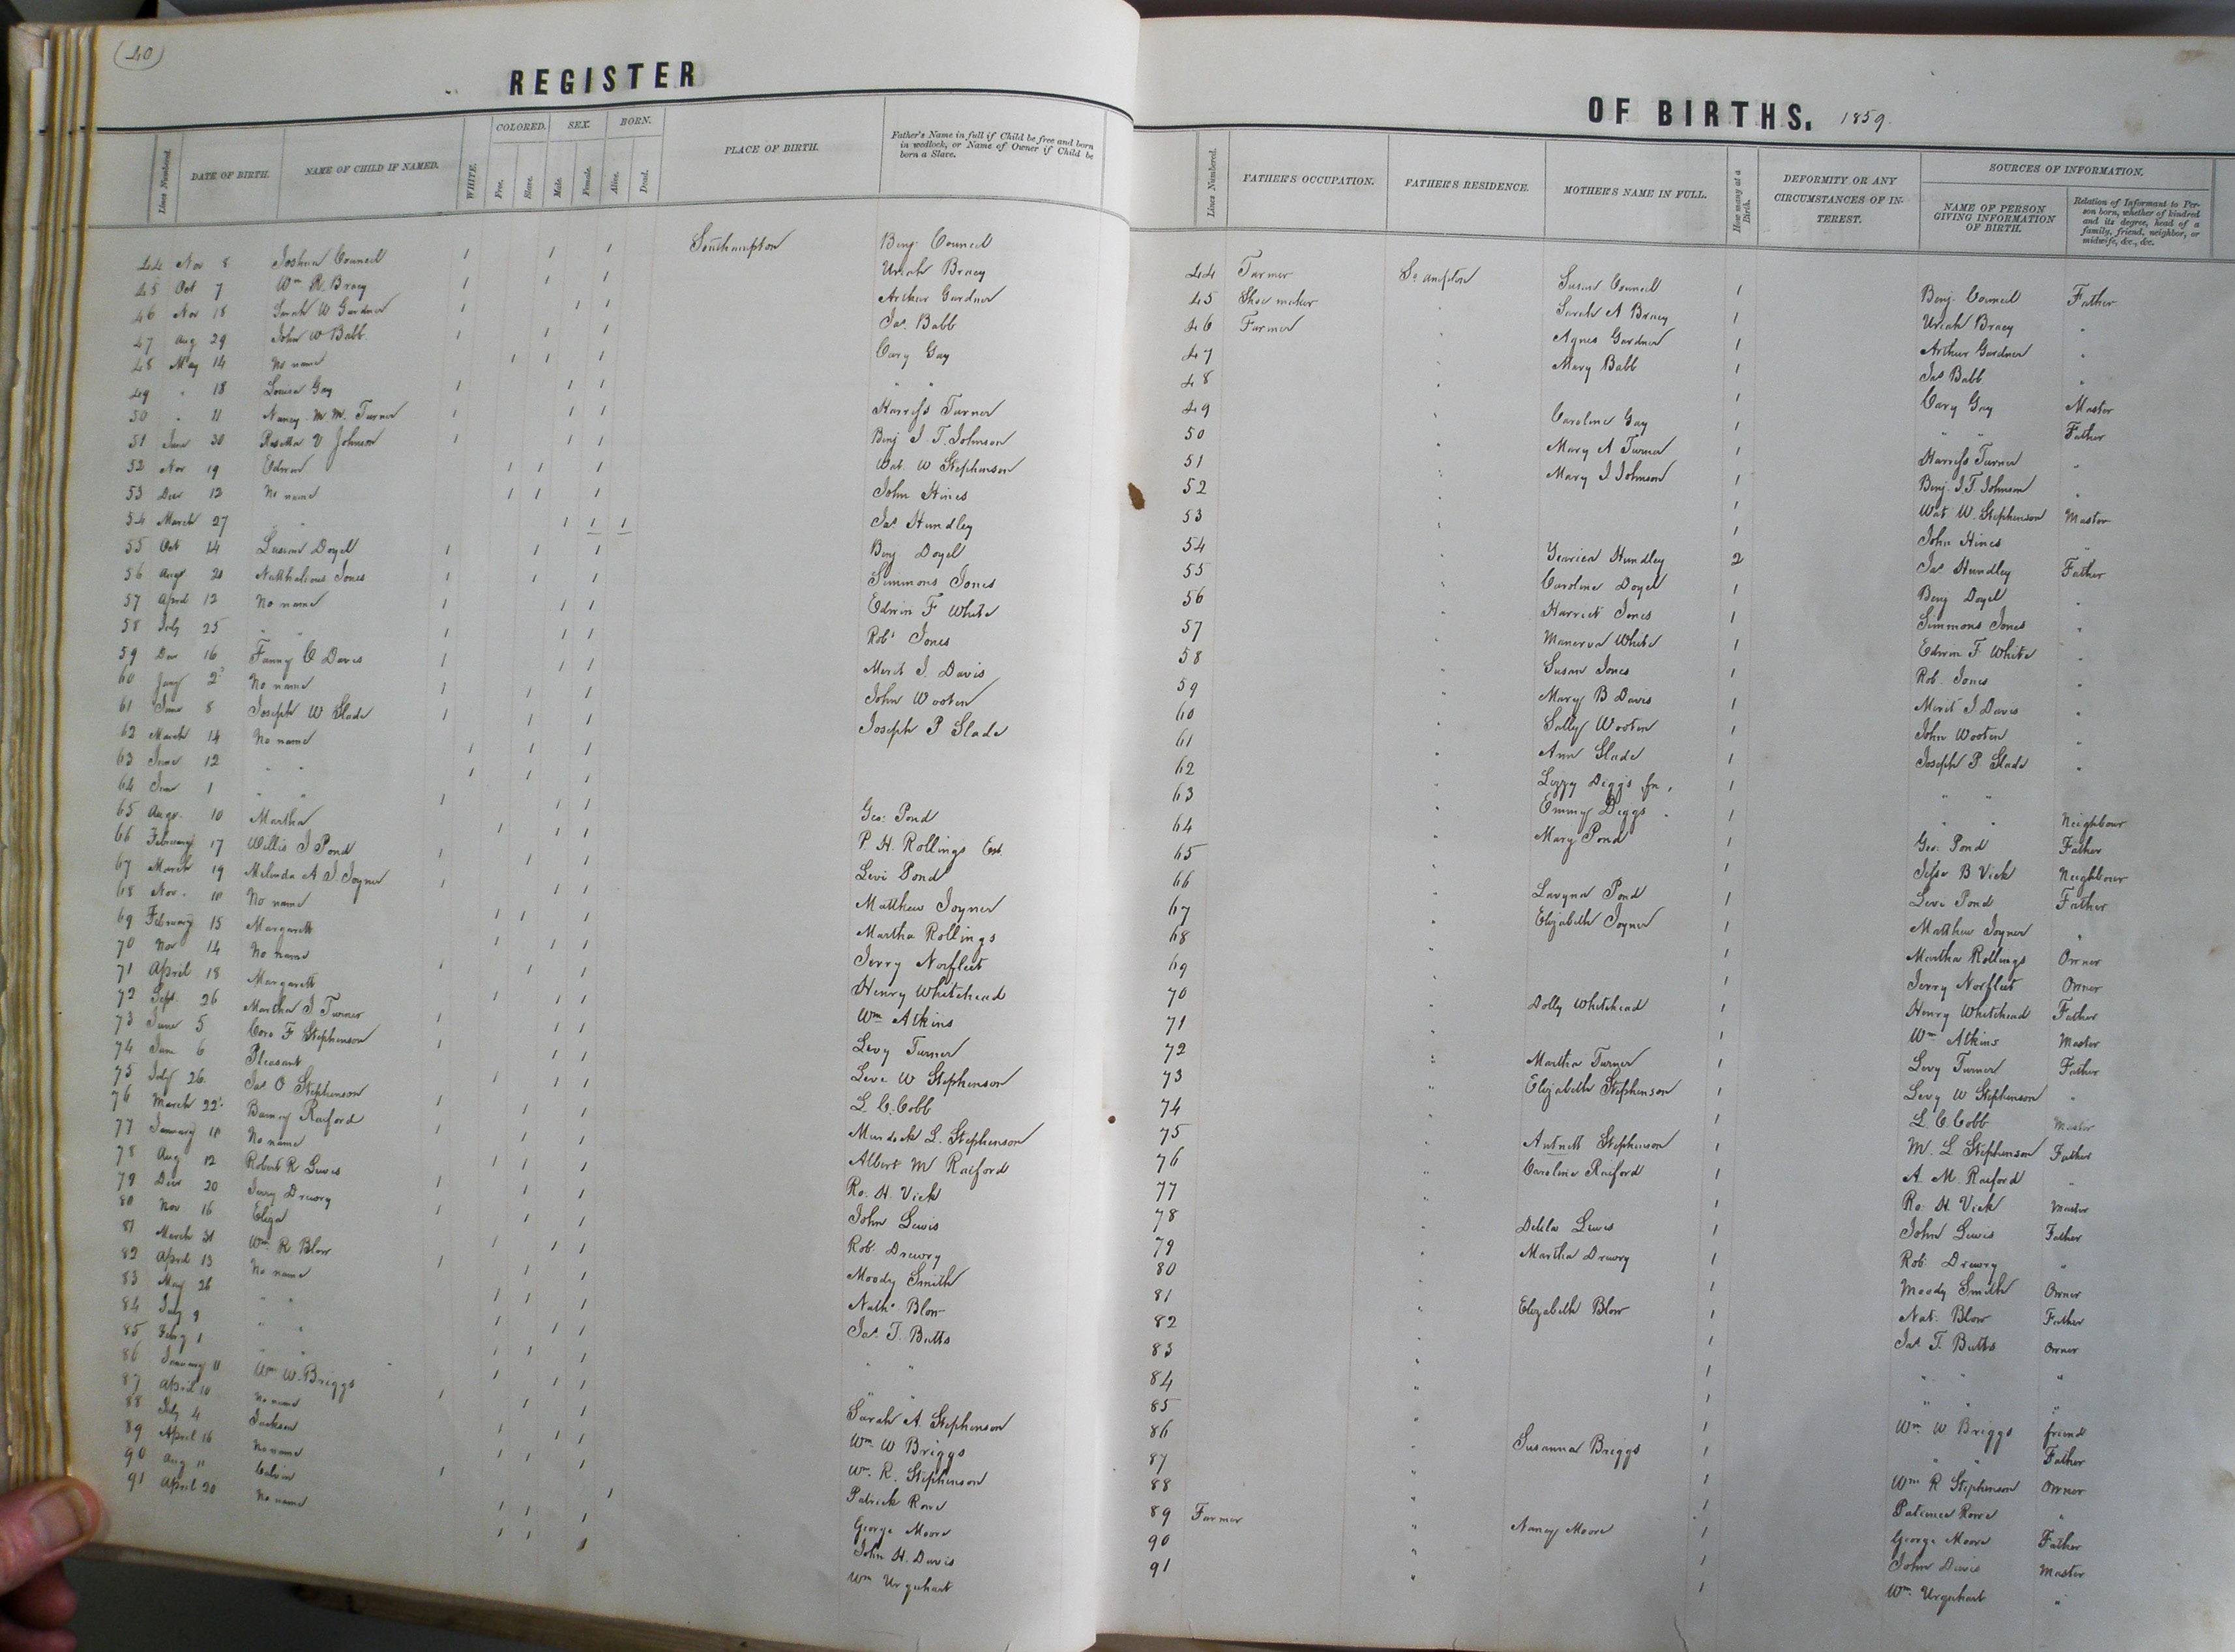 (40)
REGISTER
Lines Numbered. DATE OF BIRTH. NAME OF CHILD IF NAMED. WHITE. COLORED. Free. Slave. SEX. Male. Female. BORN. Alive. Dead. PLACE OF BIRTH. Father's Name in full if Child be free and born in wedlock, or Name of Owner if Child be born a Slave.
44 Nov 8 Joshua Council 1 1 1 Southampton Benj. Council
45 Oct 7 Wm R. Bracy 1 1 1 Uriah Bracy
46 Nov 18 Sarah W Gardner 1 1 1 Arthur Gardner
47 Aug 29 John W Babb 1 1 1 Jas. Babb
48 May 14 No name 1 1 1 Cary Gay
49 " 18 Louisa Gay 1 1 1 " "
50 " 11 Nancy M. M. Turner 1 1 1 Harriss Turner
51 June 30 Rosetta V Johnson 1 1 1 Benj J. T. Johnson
52 Nov 19 Edwin 1 1 1 Wat. W Stephenson
53 Dec 12 No name 1 1 1 John Hines
54 March 27 " " 1 1 1 Jas. Hundley
55 Oct 14 Doyel 1 1 1 Benj Doyel
56 Aug. 21 Jones 1 1 1 Simmons Jones
57 April 12 No name 1 1 1 Edwin F White
58 July 25 " " 1 1 1 Rob. Jones
59 Dec 16 Fanny C Davis 1 1 1 Merit J. Davis
60 Jany 2 No name 1 1 1 John Wooten
61 June 8 Joseph W Slade 1 1 1 Joseph P Slade
62 March 14 No name 1 1 1
63 June 12 " " 1 1 1
64 June 1 " " 1 1 1 Geo. Pond
65 Aug. 10 Martha 1 1 1 P. H. Rollings Est.
66 February 17 Willis J Pond 1 1 1 Levi Pond
67 March 19 Melinda A J. Joyner 1 1 1 Matthew Joyner
68 Nov. 10 No name 1 1 1 Martha Rollings
69 February 15 Margarett 1 1 1 Jerry Norfleet
70 Nov 14 No name 1 1 Henry Whitehead
71 April 18 Margarett 1 1 1 Wm Atkins
72 Sept. 26 Martha J Turner 1 1 1 Levy Turner
73 June 5 Cora F Stephenson 1 1 1 Levi W Stephenson
74 June 6 Pleasant 1 1 1 L. C. Cobb
75 July 26. Jas O Stephenson 1 1 Murdock L. Stephenson
76 March 22 Raiford 1 1 Albert M Raiford
77 January 10 No name 1 1 1 Ro. H. Vick
78 Aug 12 Robert R Lewis 1 1 1 John Lewis
79 Dec 20 Jerry Drewry 1 1 1 Rob. Drewry
80 Nov 16 Eliza 1 1 1 Moody Smith
81 March 31 Wm. R Blow 1 1 1 Nath. Blow
82 April 13 No name 1 1 1 Jas. T. Butts
83 May 26 " " 1 1 1 " "
84 July 9 " " 1 1 1 " "
85 Feby 1 " " 1 1 1 Sarah A. Stephenson
86 January 11 Wm W. Briggs 1 1 1 Wm. W Briggs
87 April 10 No name 1 1 1 Wm. R. Stephenson
88 July 4 Jackson 1 1 1 Patrick Rowe
89 April 16 No name 1 1 George Moore
90 Aug 11 Calvin 1 1 1 John H. Davis
91 April 20 No name 1 1 1 Wm Urquhart
OF BIRTHS. 1859.
Lines Numbered. FATHER'S OCCUPATION. FATHER'S RESIDENCE. MOTHER'S NAME IN FULL. How many at a Birth. DEFORMITY OR ANY CIRCUMSTANCES OF INTEREST. SOURCES OF INFORMATION. NAME OF PERSON GIVING INFORMATION OF BIRTH. Relation of Informant to Person born, whether of kindred and its degree, head of a family, friend, neighbor, or midwife, &c., &c.
44 Farmer So ampton Susan Council 1 Benj. Council Father
45 Shoe maker " Sarah A Bracy 1 Uriah Bracy "
46 Farmer " Agnes Gardner 1 Arthur Gardner "
47 " Mary Babb 1 Jas Babb "
48 " 1 Cary Gay Master
49 " Caroline Gay 1 " " Father
50 " Mary A Turner 1 Harriss Turner "
51 " Mary J Johnson 1 Benj. J. T. Johnson "
52 " 1 Wat W. Stephenson Master
53 " 1 John Hines "
54 " Hundley 2 Jas Hundley Father
55 " Caroline Doyel 1 Benj Doyel "
56 " Harriet Jones 1 Simmons Jones "
57 " Manerva White 1 Edwin F White "
58 " Susan Jones 1 Rob. Jones "
59 " Mary B Davis 1 Merit J Davis "
60 " Sally Wooten 1 John Wooten "
61 " Ann Slade 1 Joseph P Slade "
62 " Lizzy Diggs fn. 1 " "
63 " Emmy Diggs " 1 " " Neighbour
64 " Mary Pond 1 Geo. Pond Father
65 " 1 Jesse B Vick Neighbour
66 " Lavyna Pond 1 Levi Pond Father
67 " Elizabeth Joyner 1 Matthew Joyner "
68 " 1 Martha Rollings Owner
69 " 1 Jerry Norfleet Owner
70 " Dolly Whitehead 1 Henry Whitehead Father
71 " 1 Wm Atkins Master
72 " Martha Turner 1 Levy Turner Father
73 " Elizabeth Stephenson 1 Levy W Stephenson "
74 1 L. C. Cobb Master
75 " Antnett Stephenson 1 M. L Stephenson Father
76 " Caroline Raiford 1 A. M. Raiford "
77 " 1 Ro. H. Vick Master
78 " Delila Lewis 1 John Lewis Father
79 " Martha Drewry 1 Rob. Drewry "
80 " 1 Moody Smith Owner
81 " Elizabeth Blow 1 Nat. Blow Father
82 1 Jas. T. Butts Owner
83 " 1 " " "
84 " 1 " " "
85 " 1 Wm W Briggs friend
86 " Susanna Briggs 1 " " Father
87 " 1 Wm R Stephenson Owner
88 " 1 Patience Rowe "
89 Farmer " Nancy Moore 1 George Moore Father
90 " 1 John Davis Master
91 " 1 Wm. Urquhart "